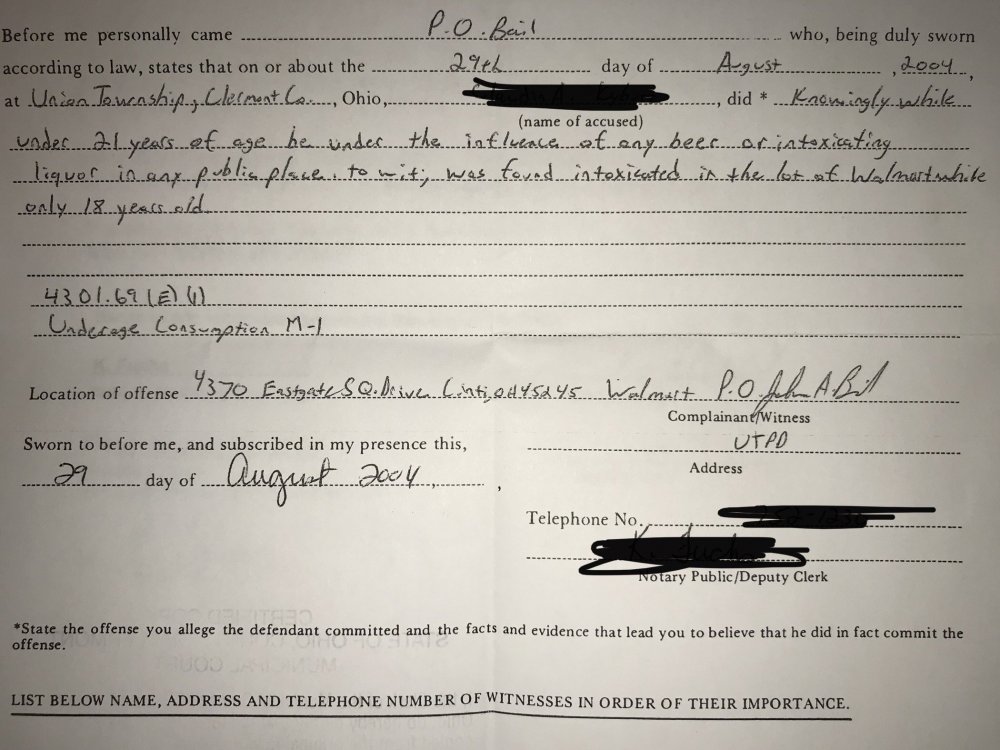 Before me personally came P.O. Bail who, being duly sworn
according to law, states that on or about the 29th day of August , 2004 ,
at Union Township, Clermont Co. , Ohio, , did * Knowingly while
(name of accused)
under 21 years of age be under the influence of any beer or intoxicating
liquor in any public place. to wit; was found intoxicated in the lot of Walmart while
only 18 years old
4301.69 (E)(1)
Underage Consumption M-1
Location of offense 4370 Eastgate SQ. Drive Cinti, OH 45245 Walmart P.O. John A Bail
Complainant/Witness
Sworn to before me, and subscribed in my presence this,
UTPD
29 day of August 2004 , ,
Address
Telephone No.
Notary Public/Deputy Clerk
*State the offense you allege the defendant committed and the facts and evidence that lead you to believe that he did in fact commit the
offense.
LIST BELOW NAME, ADDRESS AND TELEPHONE NUMBER OF WITNESSES IN ORDER OF THEIR IMPORTANCE.